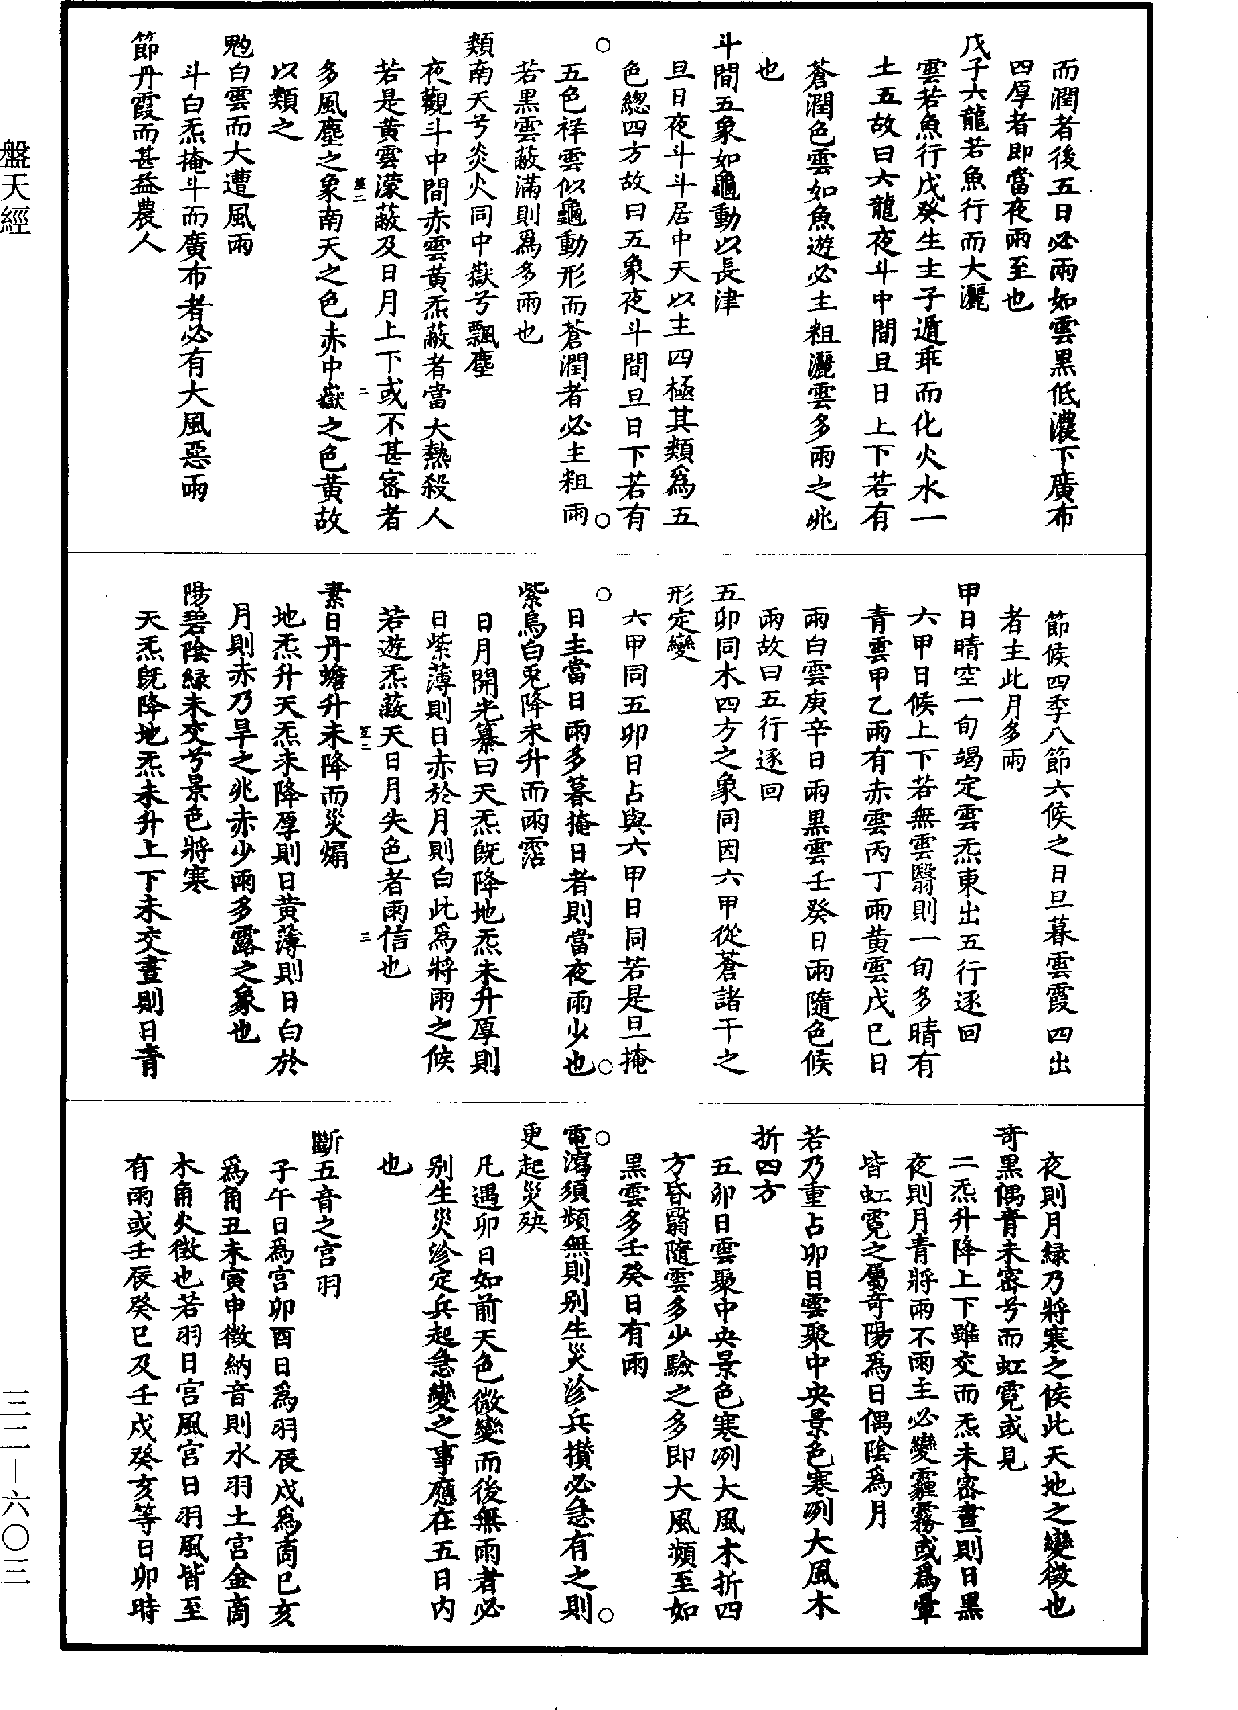 盤天經
三二—六〇三
而潤者後五日必雨如雲黑低濃下廣布
四厚者即當夜雨至也
戊子六龍若魚行而大灑
雲若魚行戊癸生主子遁乖而化火水一
土五故曰六龍夜斗中間且日上下若有
蒼潤色雲如魚遊必主粗灑雲多雨之兆
也
斗間五象如龜動以長津
旦日夜斗斗居中天以主四極其類為五
色緫四方故曰五象夜斗間旦日下若有
五色祥雲似龜動形而蒼潤者必主粗雨
若黑雲蔽滿則為多雨也
類南天兮炎火同中嶽兮飄塵
夜觀斗中間赤雲黃炁蔽者當大熱殺人
若是黃雲濛蔽及日月上下或不甚密者
多風塵之象南天之色赤中嶽之色黃故
以類之
勉白雲而大遭風雨
斗白炁掩斗而廣布者必有大風惡雨
節丹霞而甚益農人
節候四季八節六候之日旦暮雲霞四出
者主此月多雨
甲日晴空一旬竭定雲炁東出五行逐回
六甲日候上下若無雲翳則一旬多晴有
青雲甲乙雨有赤雲丙丁雨黃雲戊巳日
雨白雲庚辛日雨黑雲壬癸日雨隨色候
雨故曰五行逐回
五卯同木四方之象同因六甲從蒼諸干之
形定變
六甲同五卯日占與六甲日同若是旦掩
日主當日雨多暮掩日者則當夜雨少也
紫烏白兎降未升而雨霑
日月開光纂曰天炁旣降地炁未升厚則
日紫薄則日赤於月則白此為將雨之候
若遊炁蔽天日月失色者雨信也
素日丹蟾升未降而災煸
地炁升天炁未降厚則日黃薄則日白於
月則赤乃旱之兆赤少雨多露之象也
陽碧陰綠未交兮景色將寒
天炁旣降地炁未升上下未交晝則日青
夜則月綠乃將寒之候此天地之變徵也
奇黑偶青未密兮而虹霓或見
二炁升降上下雖交而炁未密晝則日黑
夜則月青將雨不雨主必變霾霧或為暈
皆虹霓之屬奇陽為日偶陰為月
若乃重占卯日雲聚中央景色寒冽大風木
折四方
五卯日雲聚中央景色寒冽大風木折四
方昏翳隨雲多少驗之多即大風頻至如
黑雲多壬癸日有雨
電瀉須頻無則別生災沴兵攢必急有之則
更起災殃
凡遇卯日如前天色微變而後無雨者必
別生災沴定兵起急變之事應在五日內
也
斷五音之宮羽
子午日為宮卯酉日為羽辰戌為商巳亥
為角丑未寅申徵納音則水羽土宮金商
木角火徵也若羽日宮風宮日羽風皆至
有雨或壬辰癸巳及壬戌癸亥等日卯時